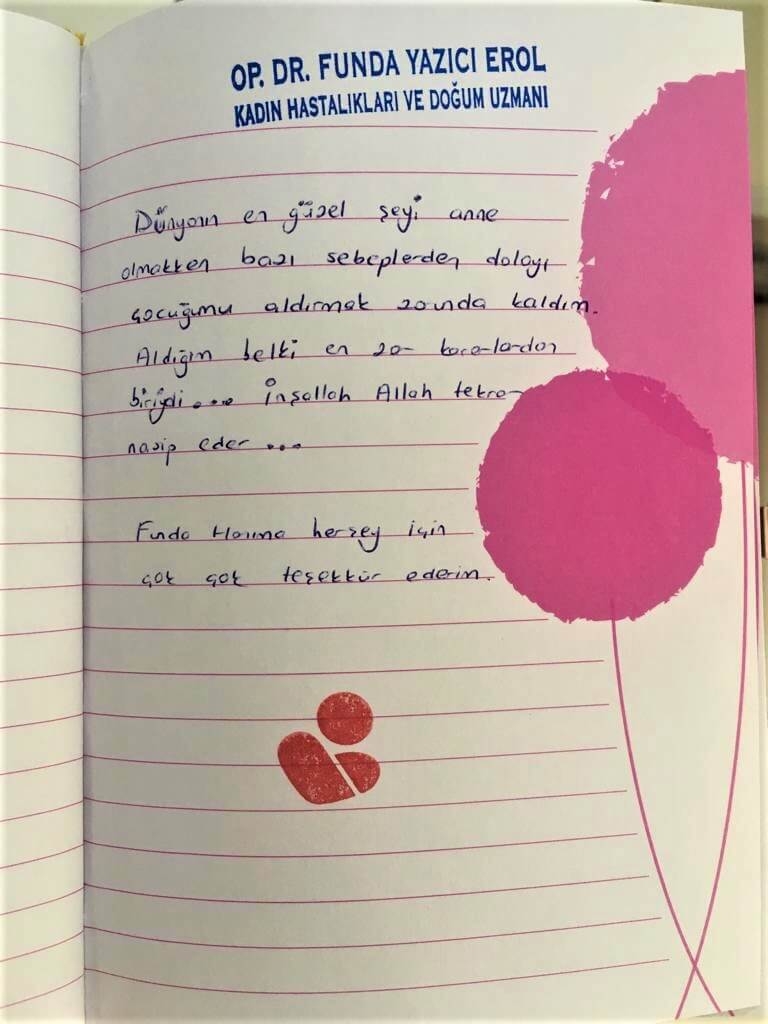 OP. DR. FUNDA YAZICI EROL
KADIN HASTALIKLARI VE DOĞUM UZMANI
Dünyanın en güzel şeyi anne
olmakken bazı sebeplerden dolayı
çocuğumu aldırmak zorunda kaldım.
Aldığım belki en zor kararlardan
biriydi.... İnşallah Allah tekrar
nasip eder...
Funda Hanıma herşey için
çok çok teşekkür ederim.